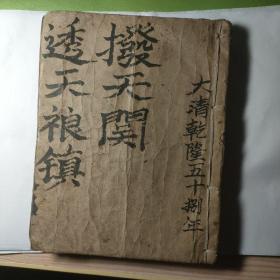 大清乾隆五十捌年
撥天関
透天祿鎮